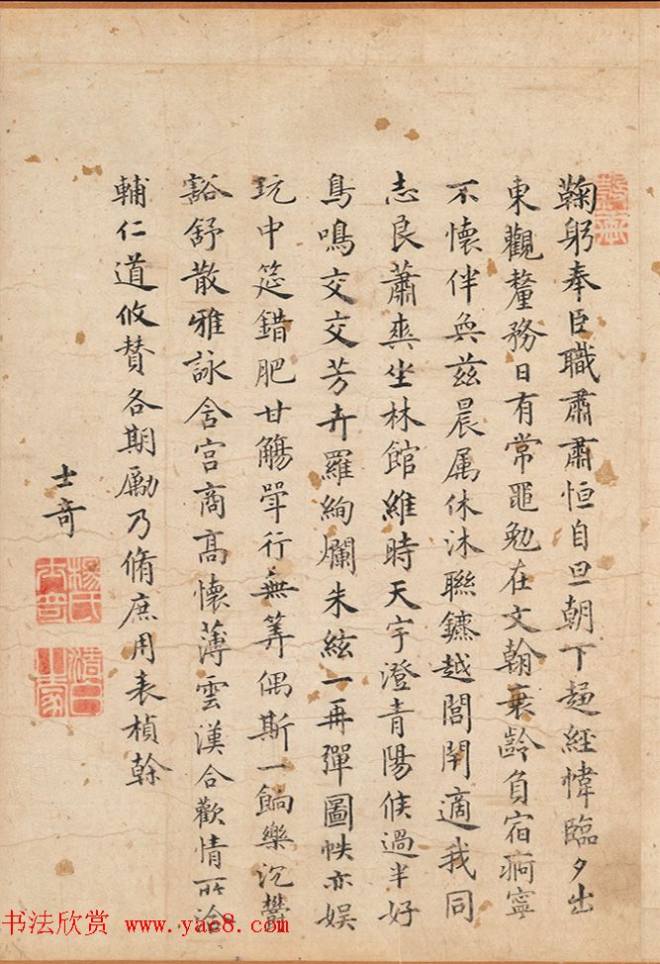 鞠躬奉臣職肅肅恒自旦朝下趨經幃臨夕出
東觀釐務日有常黽勉在文翰衰齡負宿痾寧
不懷伴奐茲晨属休沐聯鑣越閭閈適我同
志良蕭爽坐林館維時天宇澄青陽候過半好
鳥鳴交交芳卉羅絢爛朱絃一再彈圖帙亦娱
玩中筵錯肥甘觴斝行無筭偶斯一餉樂沉鬱
豁舒散雅詠含宫商高懷薄雲漢合歡情所洽
輔仁道攸賛各期勵乃脩庶用表楨榦
士奇
楊氏士奇
书法欣赏 www.yac8.com